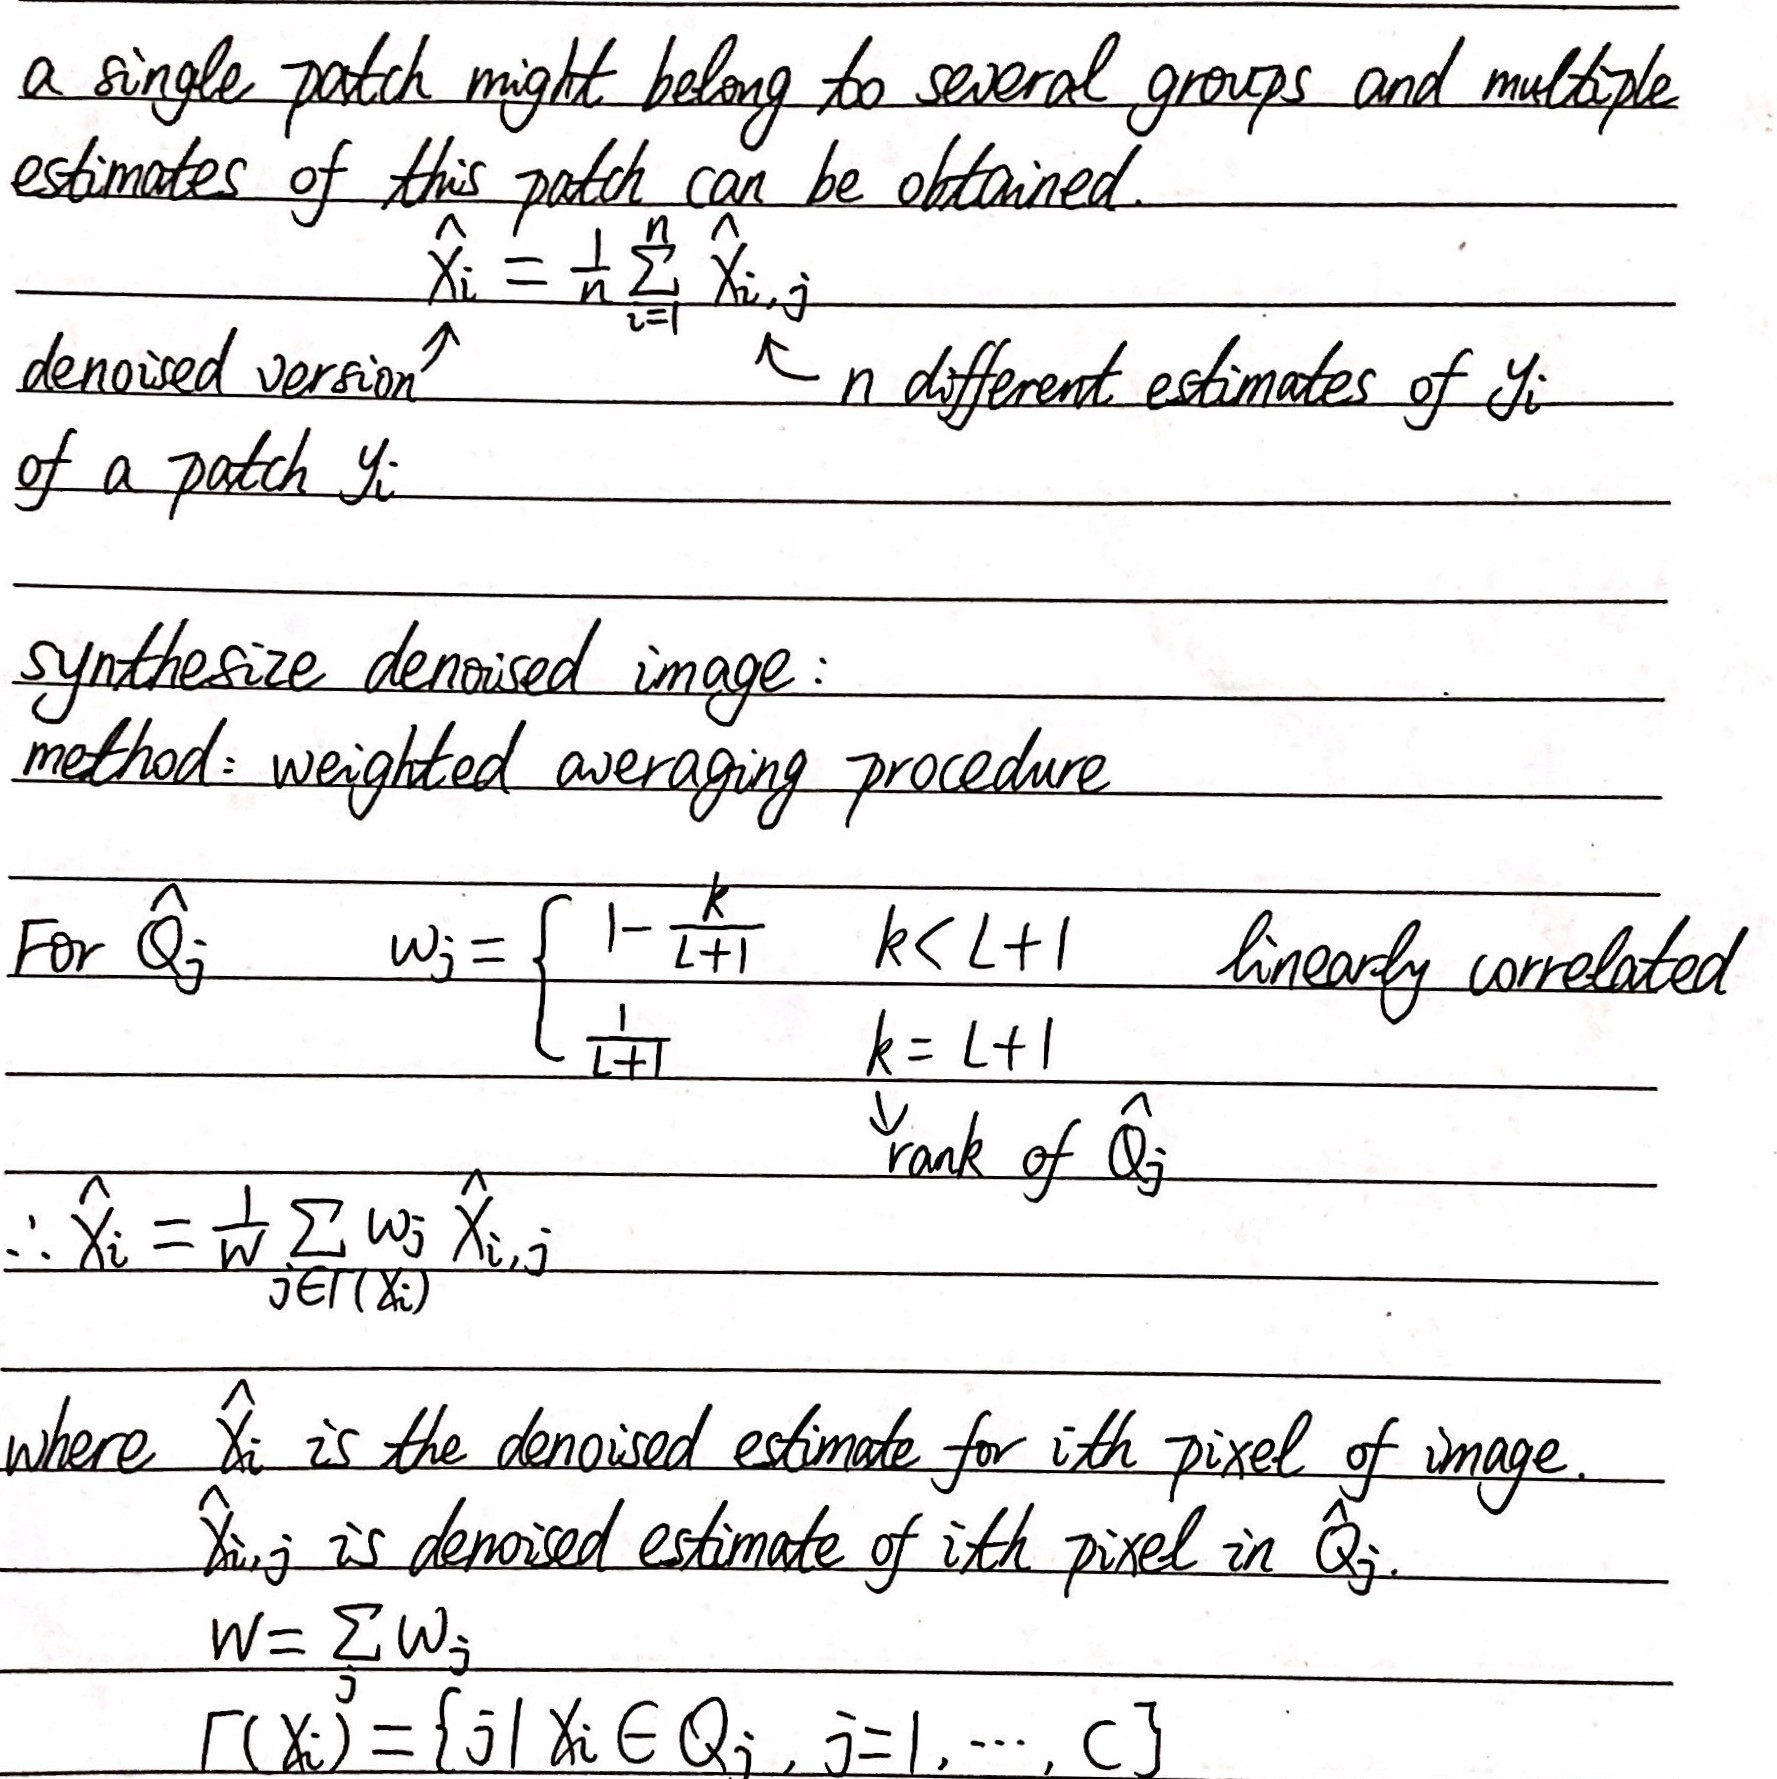 a single patch might belong to several groups and multiple
estimates of this patch can be obtained.
X̂ᵢ = 1/n Σ_{i=1}^{n} X̂ᵢ,ⱼ
denoised version ↗ ↖ n different estimates of yᵢ
of a patch yᵢ
synthesize denoised image:
method: weighted averaging procedure
For Q̂ⱼ wⱼ = { 1 - k/(L+1) k < L+1 linearly correlated
1/(L+1) k = L+1
↓ rank of Q̂ⱼ
∴ X̂ᵢ = 1/W Σ_{j∈Γ(Xᵢ)} wⱼ X̂ᵢ,ⱼ
where X̂ᵢ is the denoised estimate for ith pixel of image.
X̂ᵢ,ⱼ is denoised estimate of ith pixel in Q̂ⱼ.
W = Σ_j wⱼ
Γ(Xᵢ) = {j | Xᵢ ∈ Qⱼ, j=1, ⋯, C}